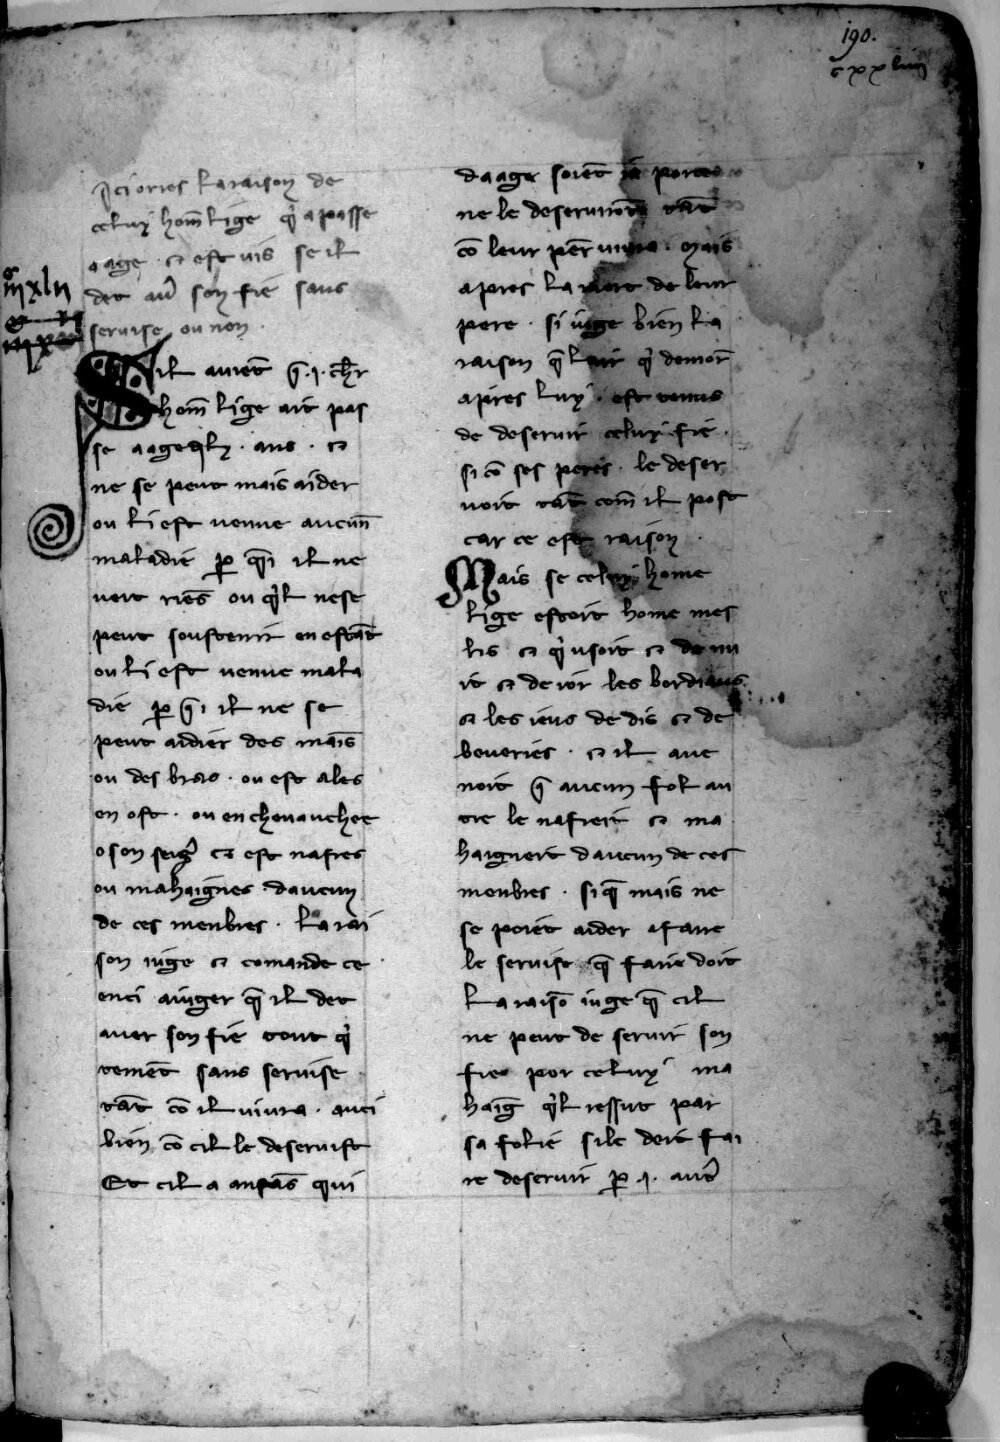 190.
cxxliiii
Ici orres la raison de
celuy hom̃ lige q̓ a passe
aage · et est uis se il
det au̓ son fie sans
seruise ou non ·
Sil auiẽt q̃ .i. ch̓r
hom̃ lige ait pas
se aage · ans · et
ne se peut mais aider
ou li est uenue aucun̄
maladie ꝑ q̃i il ne
uoit riẽs ou q̓l ne se
peut soustenir en estãt
ou li est uenue mala
die ꝑ q̃i il ne se
peut aidier des mais
ou des bras · ou est ales
en ost · ou en cheuauchee
o son seig̓ et est nafres
ou mahaignes daucun
de ces menbres · la rai
son iuge et comande ce
enci a iuger q̃ il det
auer son fie tout q̓
temẽt sans seruise
tãt cõ il uiura · auci
bien cõ cil le deseruist
Et cil a anfãs qui
daage soiẽt ia por ce
ne le deseruirõt tãt
cõ leur per̃ uiura · mais
apres la mort de leur
pere · si iuge bien la
raison q̃ lair q̓ demor̃
apres luy · est tenus
de deseruir celuy fie ·
si cõ ses peres · le deser
uoit tãt com̃ il post
car ce est raison ·
Mais se celuy home
lige estoit home mes
lis et q̓ usoit et de nu
it et de ior les bordiaus
et les ieus de dis et de
beueries · et il aue
noit q̃ aucun fol au
tre le nafreit et ma
haigneit daucun de ces
menbres · si q̃ mais ne
se poiet aider a faire
le seruise q̃ faire doit
la raisõ iuge q̃ cil
ne peut de seruir son
fie por celuy ma
haig̃ q̓l ressut par
sa folie si le doit fai
re deseruir ꝑ .i. aut̓